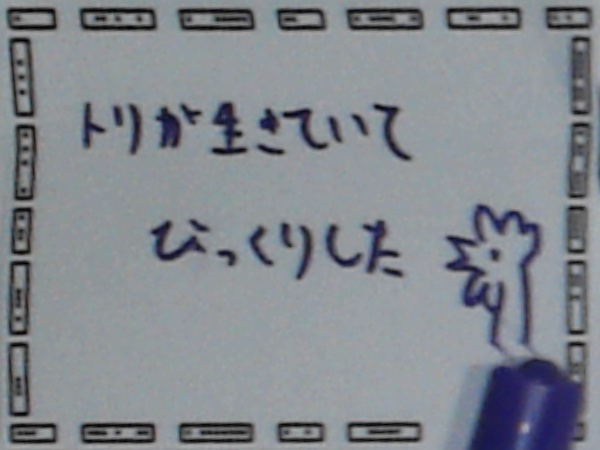 トリが生きていて
びっくりした